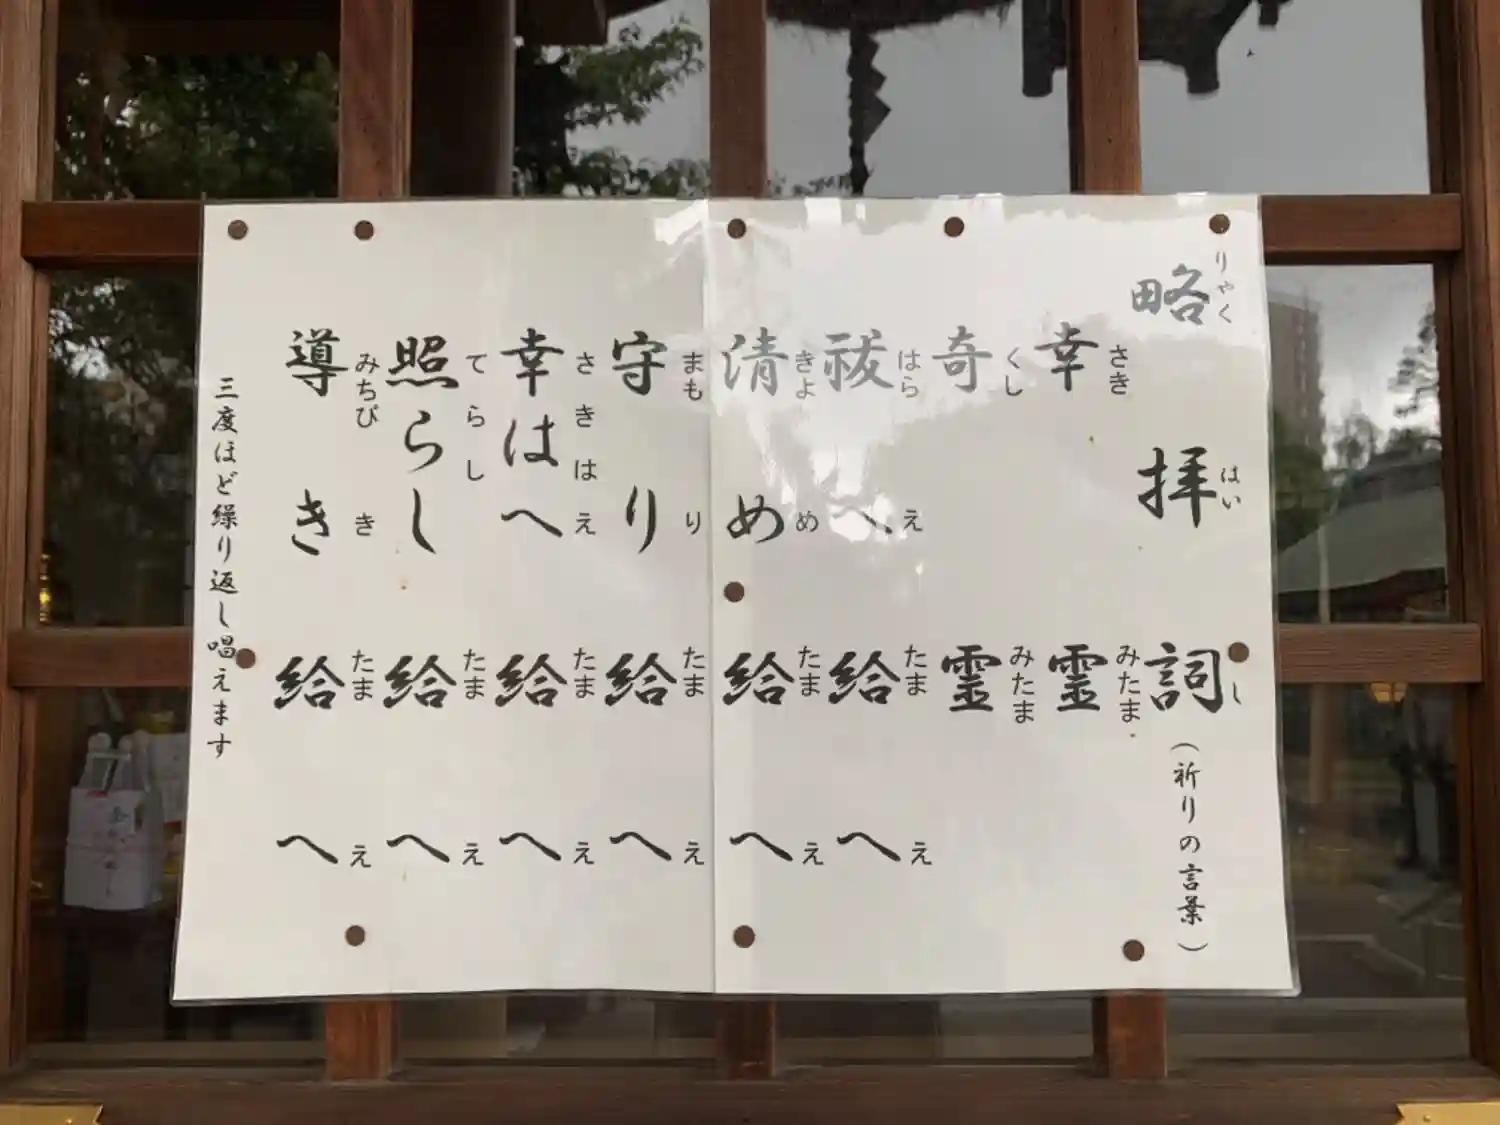 略拝詞(祈りの言葉)
りゃくはいし
幸霊
さきみたま
奇霊
くしみたま
祓へ給へ
はらえたまえ
清め給へ
きよめたまえ
守り給へ
まもりたまえ
幸はへ給へ
さきはえたまえ
照らし給へ
てらしたまえ
導き給へ
みちびきたまえ
三度ほど繰り返し唱えます